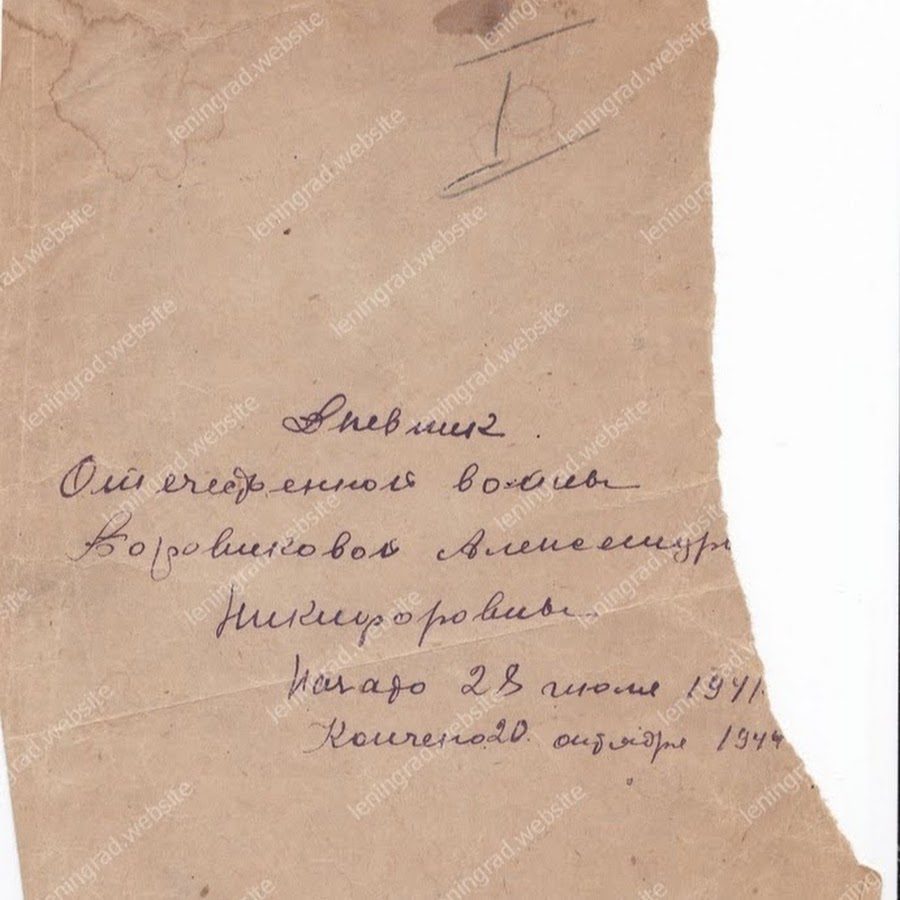 I
Дневник.
Отечественной войны
Боровиковой Александры
Никифоровны.
Начато 28 июля 1941.
Кончено 20 октября 1944
leningrad.website